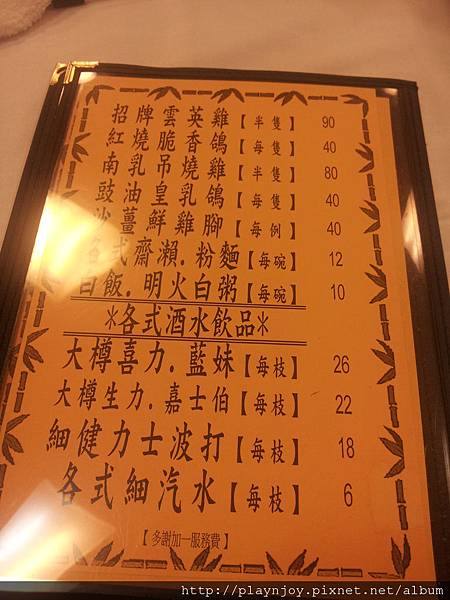 招牌雲英雞【半隻】 90
紅燒脆香鴿【每隻】 40
南乳吊燒雞【半隻】 80
豉油皇乳鴿【每隻】 40
沙薑鮮雞腳【每例】 40
各式齋瀨.粉麵【每碗】 12
白飯.明火白粥【每碗】 10
*各式酒水飲品*
大樽喜力.藍妹【每枝】 26
大樽生力.嘉士伯【每枝】 22
細健力士波打【每枝】 18
各式細汽水【每枝】 6
【多謝加一服務費】
http://playnjoy.pixnet.net/album